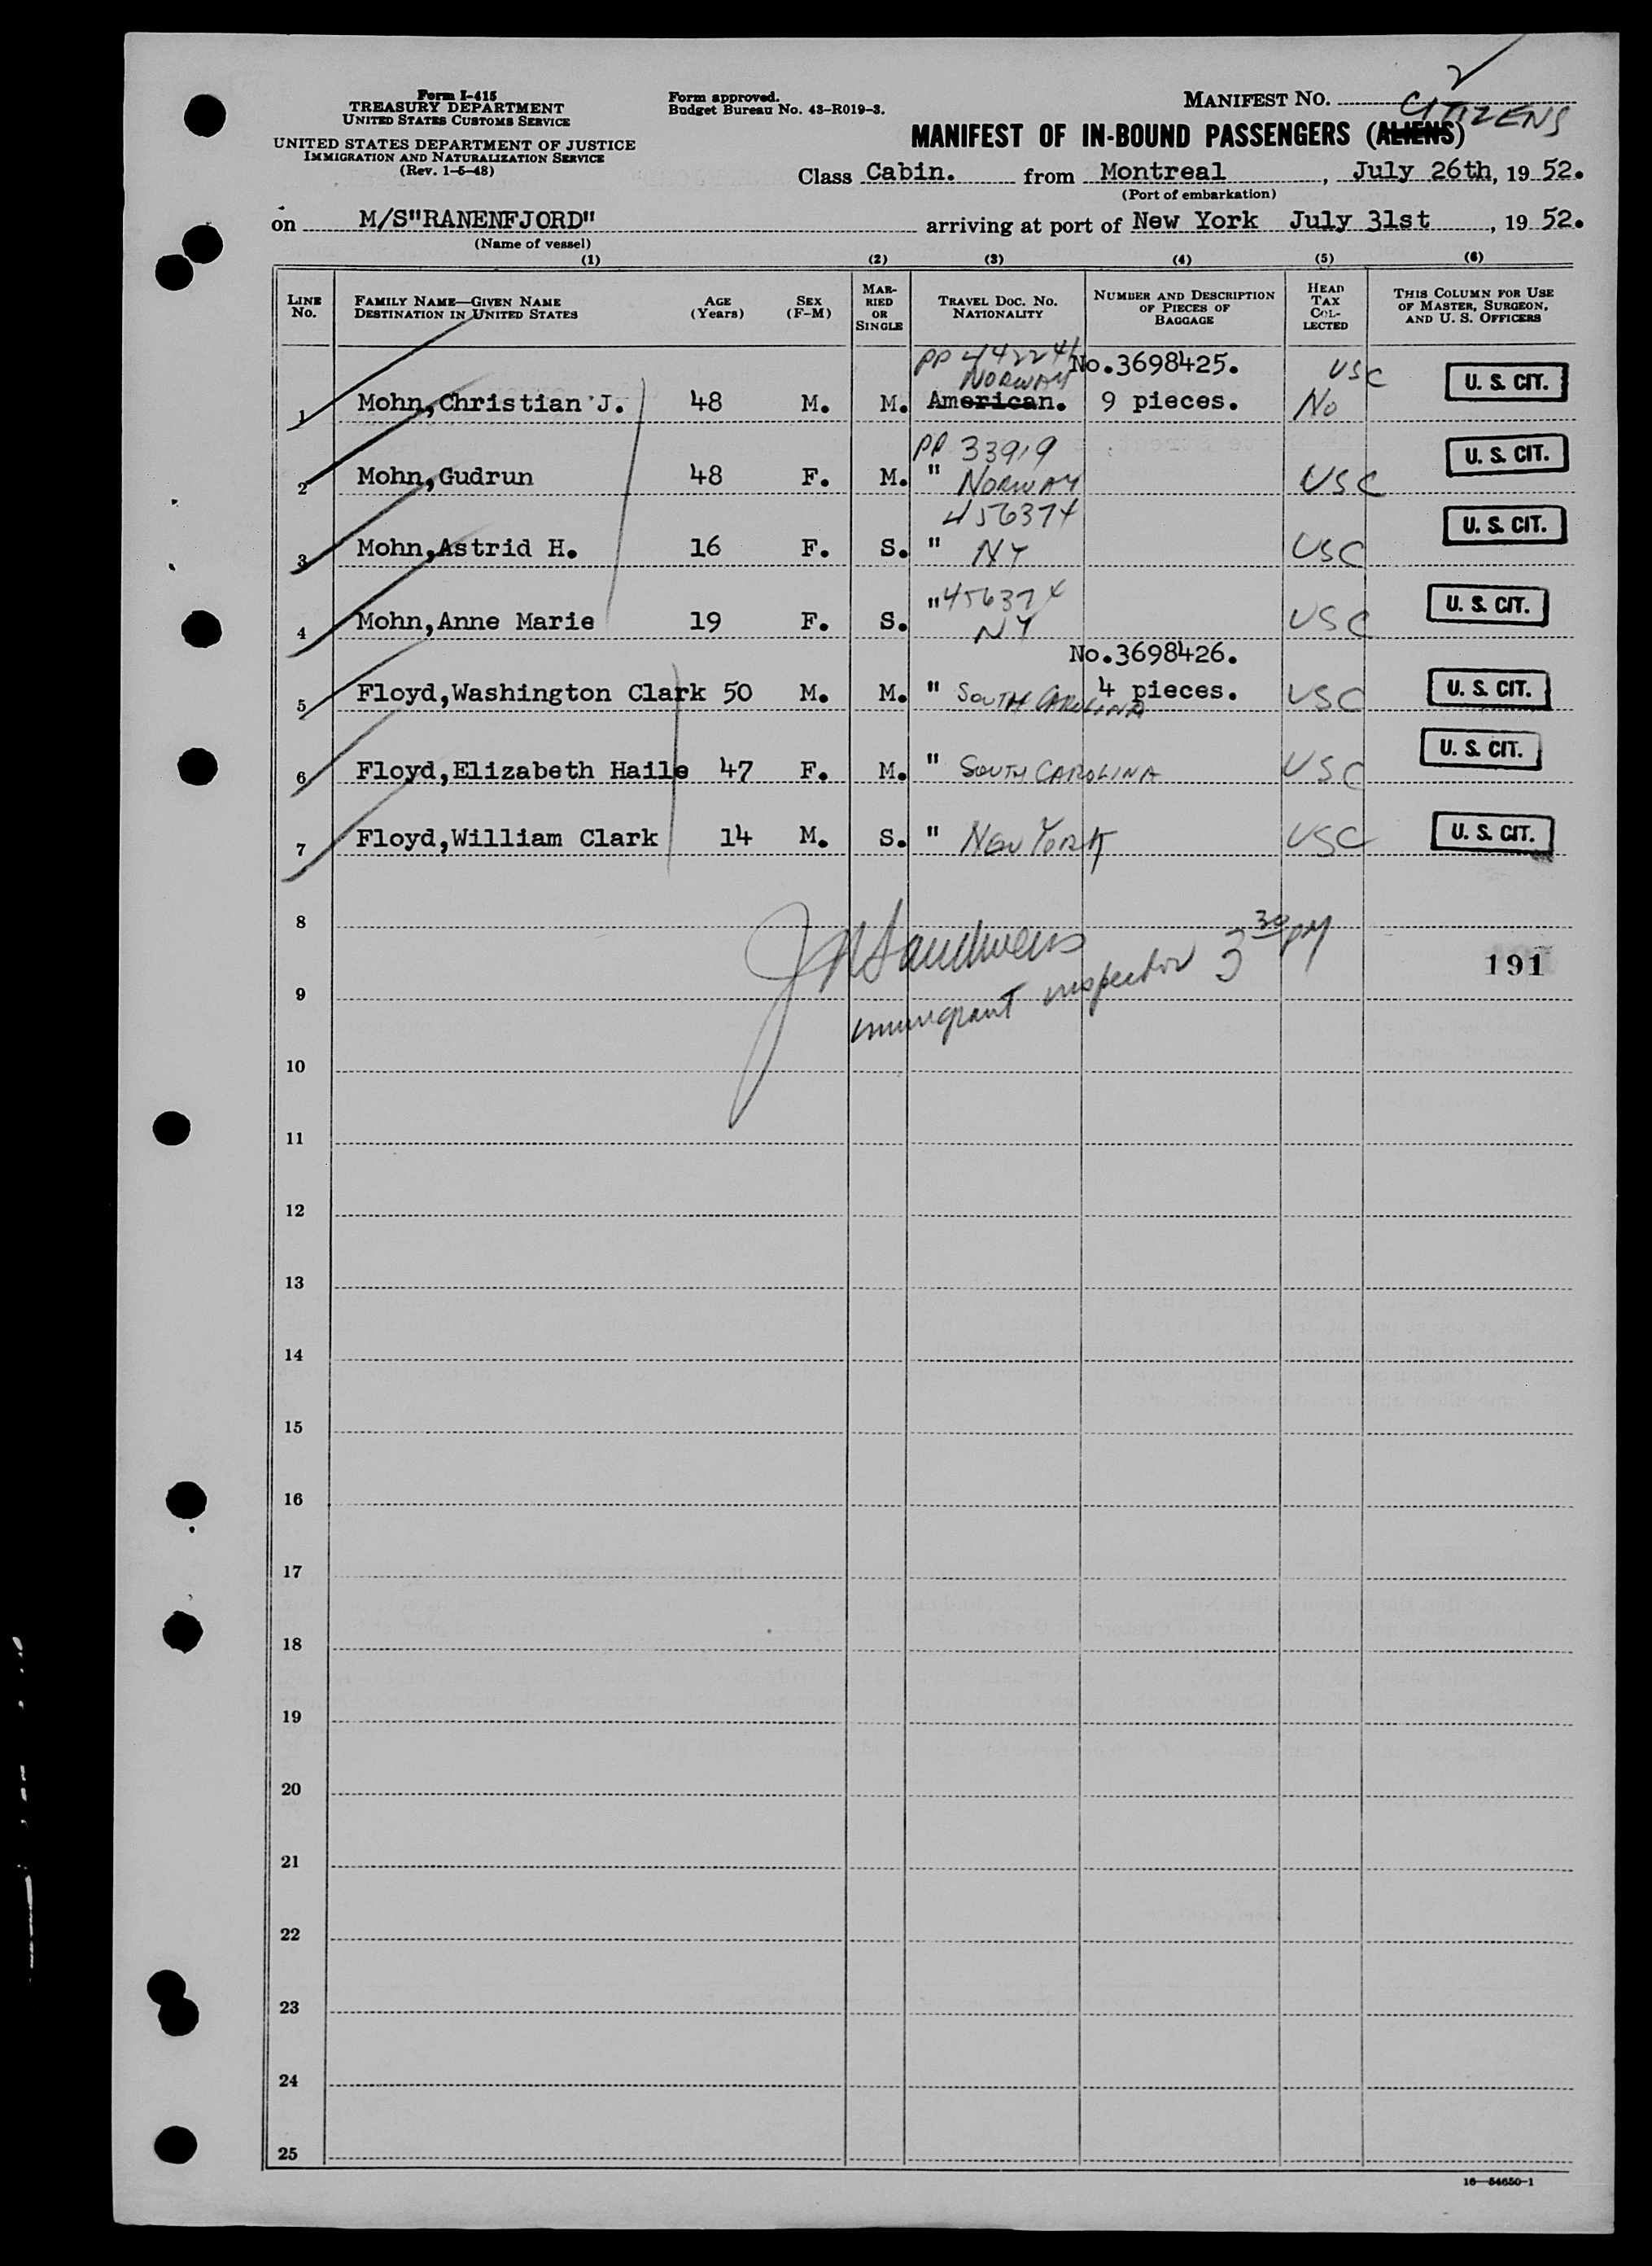 Form I-415
TREASURY DEPARTMENT
UNITED STATES CUSTOMS SERVICE
UNITED STATES DEPARTMENT OF JUSTICE
IMMIGRATION AND NATURALIZATION SERVICE
(Rev. 1-5-48)
Form approved.
Budget Bureau No. 43-R019-3.
2
MANIFEST NO.
CITIZENS
MANIFEST OF IN-BOUND PASSENGERS (ALIENS)
Class Cabin. from Montreal, July 26th, 19 52.
(Port of embarkation)
on M/S"RANENFJORD" arriving at port of New York July 31st, 19 52.
(Name of vessel)
(1) (2) (3) (4) (5) (6)
LINE No. FAMILY NAME—GIVEN NAME DESTINATION IN UNITED STATES AGE (Years) SEX (F-M) MARRIED OR SINGLE TRAVEL DOC. NO. NATIONALITY NUMBER AND DESCRIPTION OF PIECES OF BAGGAGE HEAD TAX COLLECTED THIS COLUMN FOR USE OF MASTER, SURGEON, AND U. S. OFFICERS
PP No.3698425. USC
NORWAY
1 Mohn,Christian J. 48 M. M. American. 9 pieces. No U. S. CIT.
PP 33919
2 Mohn,Gudrun 48 F. M. " NORWAY USC U. S. CIT.
456374
3 Mohn,Astrid H. 16 F. S. " NY USC U. S. CIT.
456374
4 Mohn,Anne Marie 19 F. S. " NY USC U. S. CIT.
No.3698426.
5 Floyd,Washington Clark 50 M. M. " SOUTH CAROLINA 4 pieces. USC U. S. CIT.
6 Floyd,Elizabeth Haile 47 F. M. " SOUTH CAROLINA USC U. S. CIT.
7 Floyd,William Clark 14 M. S. " NEW YORK USC U. S. CIT.
8
3 30 PM
191
9
immigrant inspector
10
11
12
13
14
15
16
17
18
19
20
21
22
23
24
25
16—54650-1